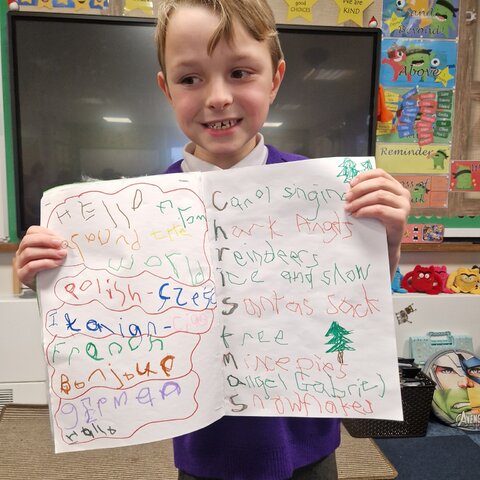 good CHOICES
We are KIND
and beyond!
Above
Reminder
HELLO
From
around the
world
polish-
Italian-
French
Bonjour
German
Hallo
Carol singing
hark Angls
reindeers
ice and snow
santas sack
tree
mincepies
angel (Gabriel)
snowflakes
AVENGERS